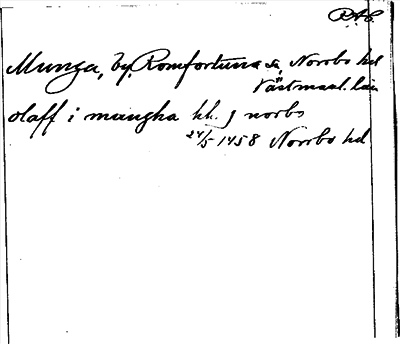 R.A.P.
Munga, by, Romfartuna sn, Norrbo hd
Västmanl. län
olaff i mungha hh. j norbo
24/5 1458 Norrbo hd